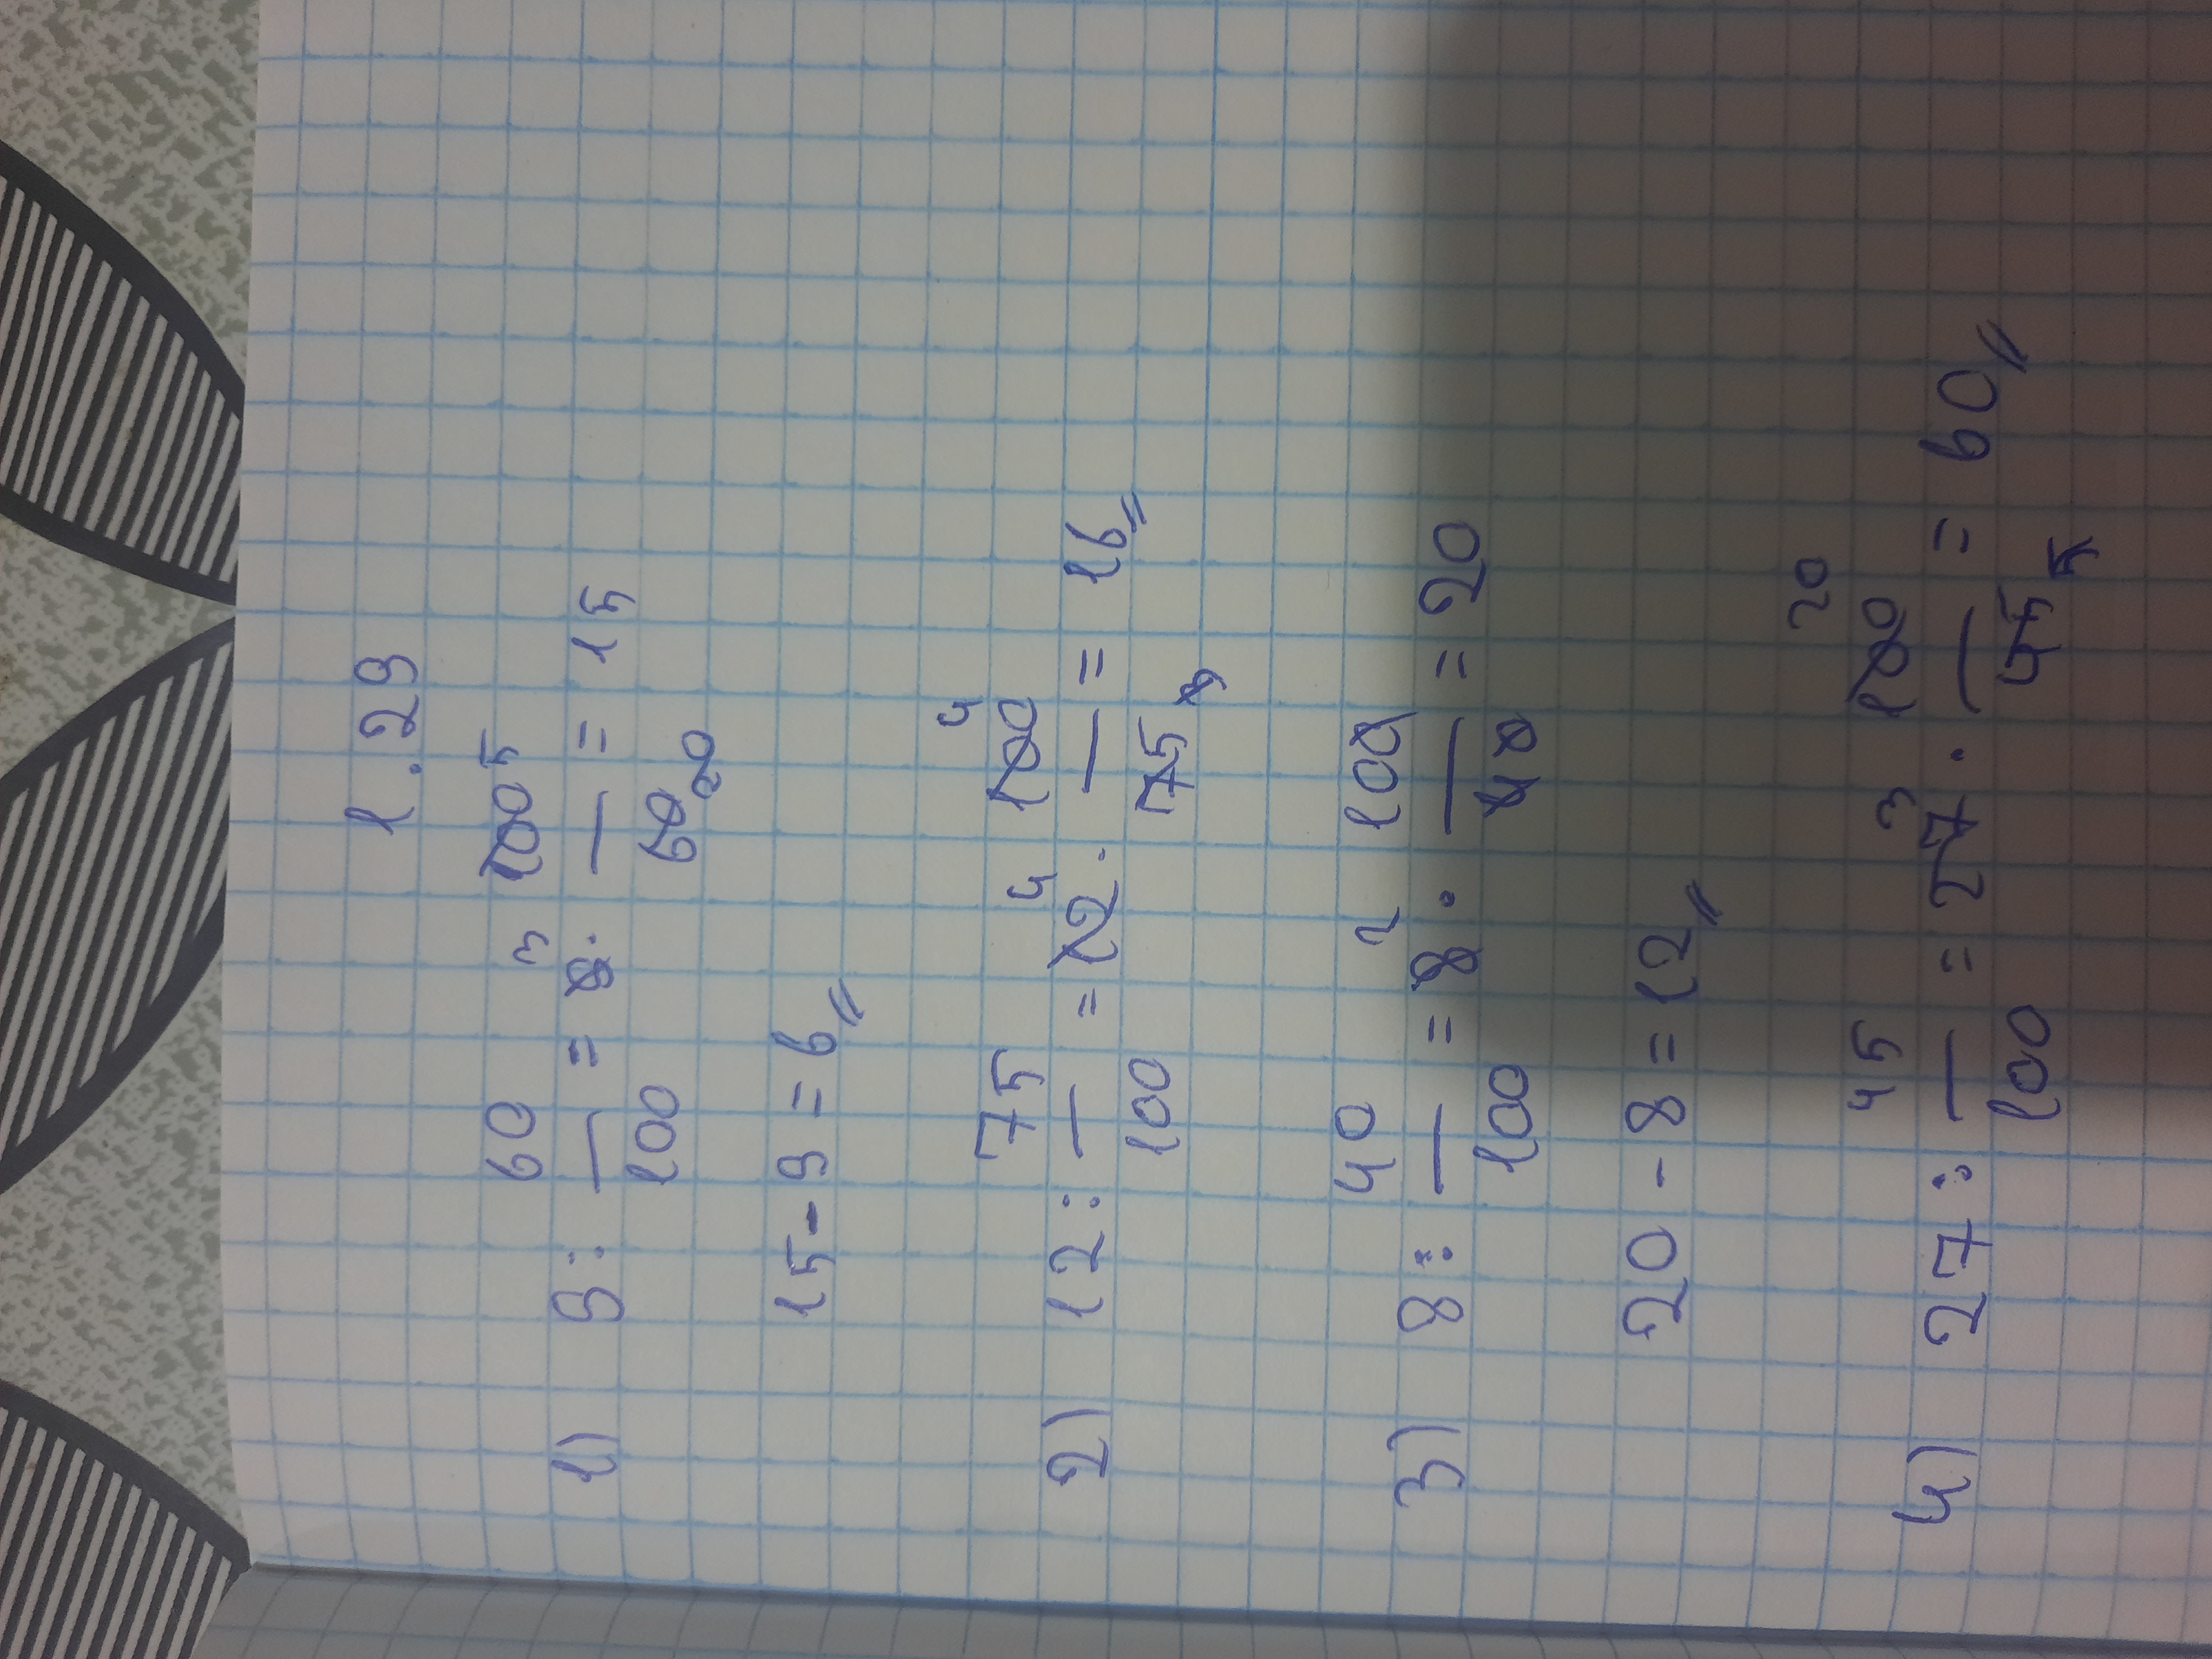 1.29
1) 9 : 60/100 = 9 3 · 100 5/60 20 = 15
15 - 9 = 6
2) 12 : 75/100 = 12 4 · 100 4/75 3 = 16
3) 8 : 40/100 = 8 2 · 100/40 = 20
20 - 8 = 12
4) 27 : 45/100 = 27 3 · 100 20/45 5 = 60